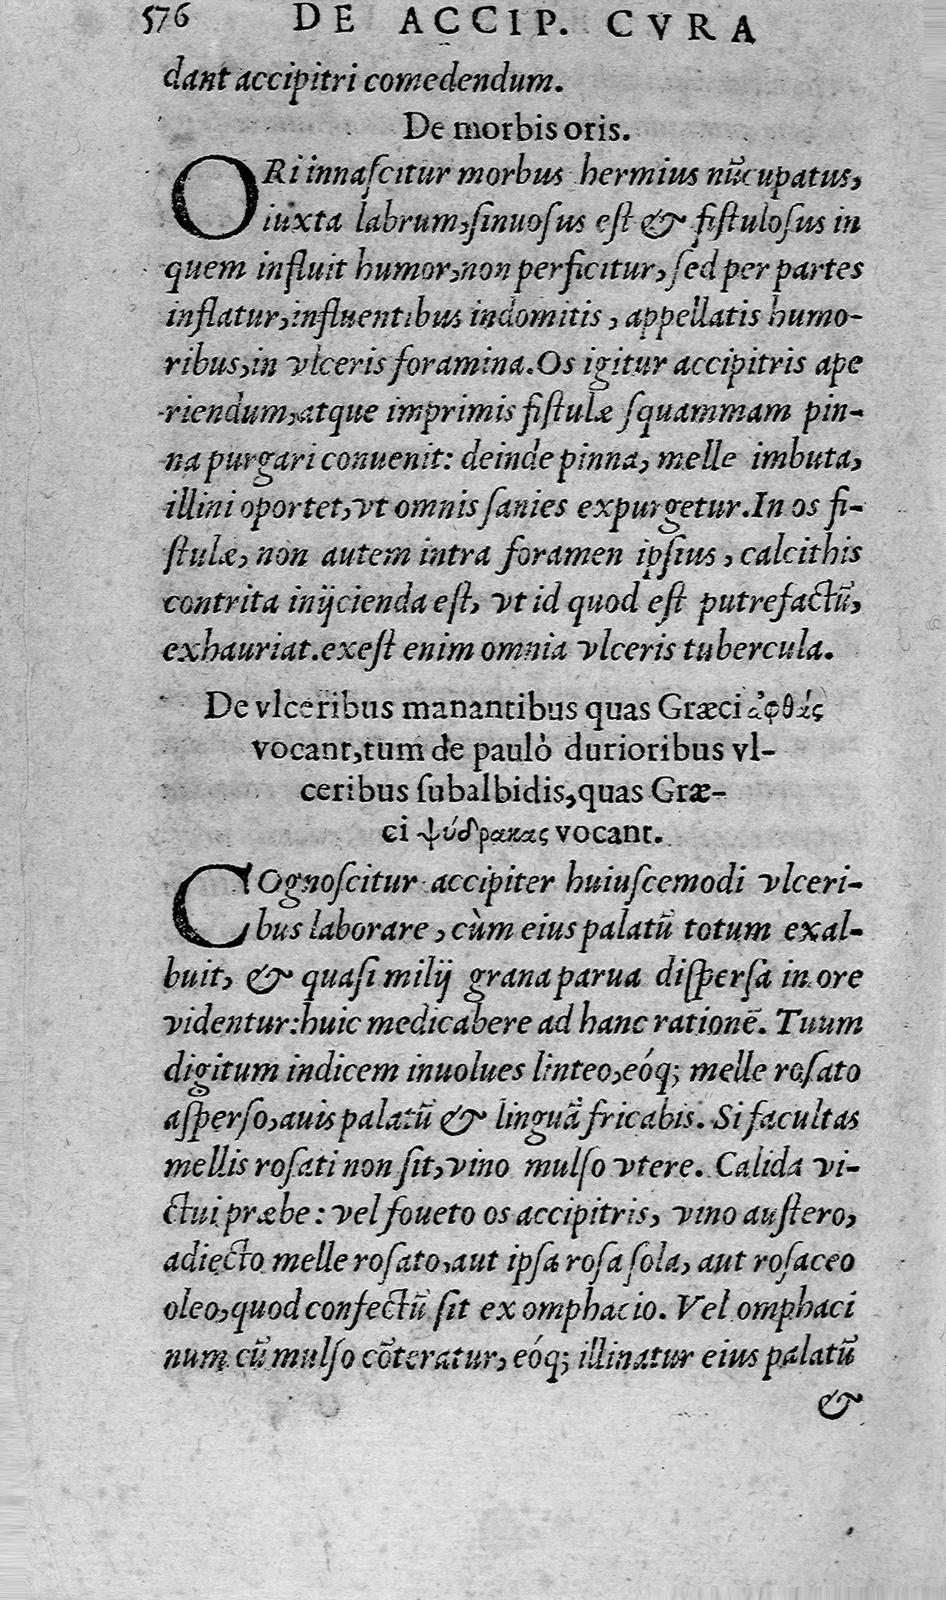 576 DE ACCIP. CVRA
dant accipitri comedendum.
De morbis oris.
ORi innaſcitur morbus hermius nũcupatus,
iuxta labrum, ſinuoſus eſt & fiſtuloſus in
quem influit humor, non perficitur, ſed per partes
inflatur, influentibus indomitis, appellatis humo-
ribus, in vlceris foramina. Os igitur accipitris ape
riendum, atque imprimis fiſtulæ ſquammam pin-
na purgari conuenit: deinde pinna, melle imbuta,
illini oportet, vt omnis ſanies expurgetur. In os fi-
ſtulæ, non autem intra foramen ipſius, calcithis
contrita inijcienda eſt, vt id quod eſt putrefactũ,
exhauriat. exeſt enim omnia vlceris tubercula.
De vlceribus manantibus quas Græci ἀφθάς
vocant, tum de paulò durioribus vl-
ceribus ſubalbidis, quas Græ-
ci ψύδρακας vocant.
COgnoſcitur accipiter huiuſcemodi vlceri-
bus laborare, cùm eius palatũ totum exal-
buit, & quaſi milij grana parua diſperſa in ore
videntur: huic medicabere ad hanc rationẽ. Tuum
digitum indicem inuolues linteo, eóq; melle roſato
aſperſo, auis palatũ & linguã fricabis. Si facultas
mellis roſati non ſit, vino mulſo vtere. Calida vi-
ctui præbe: vel foueto os accipitris, vino auſtero,
adiecto melle roſato, aut ipſa roſa ſola, aut roſaceo
oleo, quod confectũ ſit ex omphacio. Vel omphaci
num cũ mulſo cõteratur, eóq; illinatur eius palatũ
&